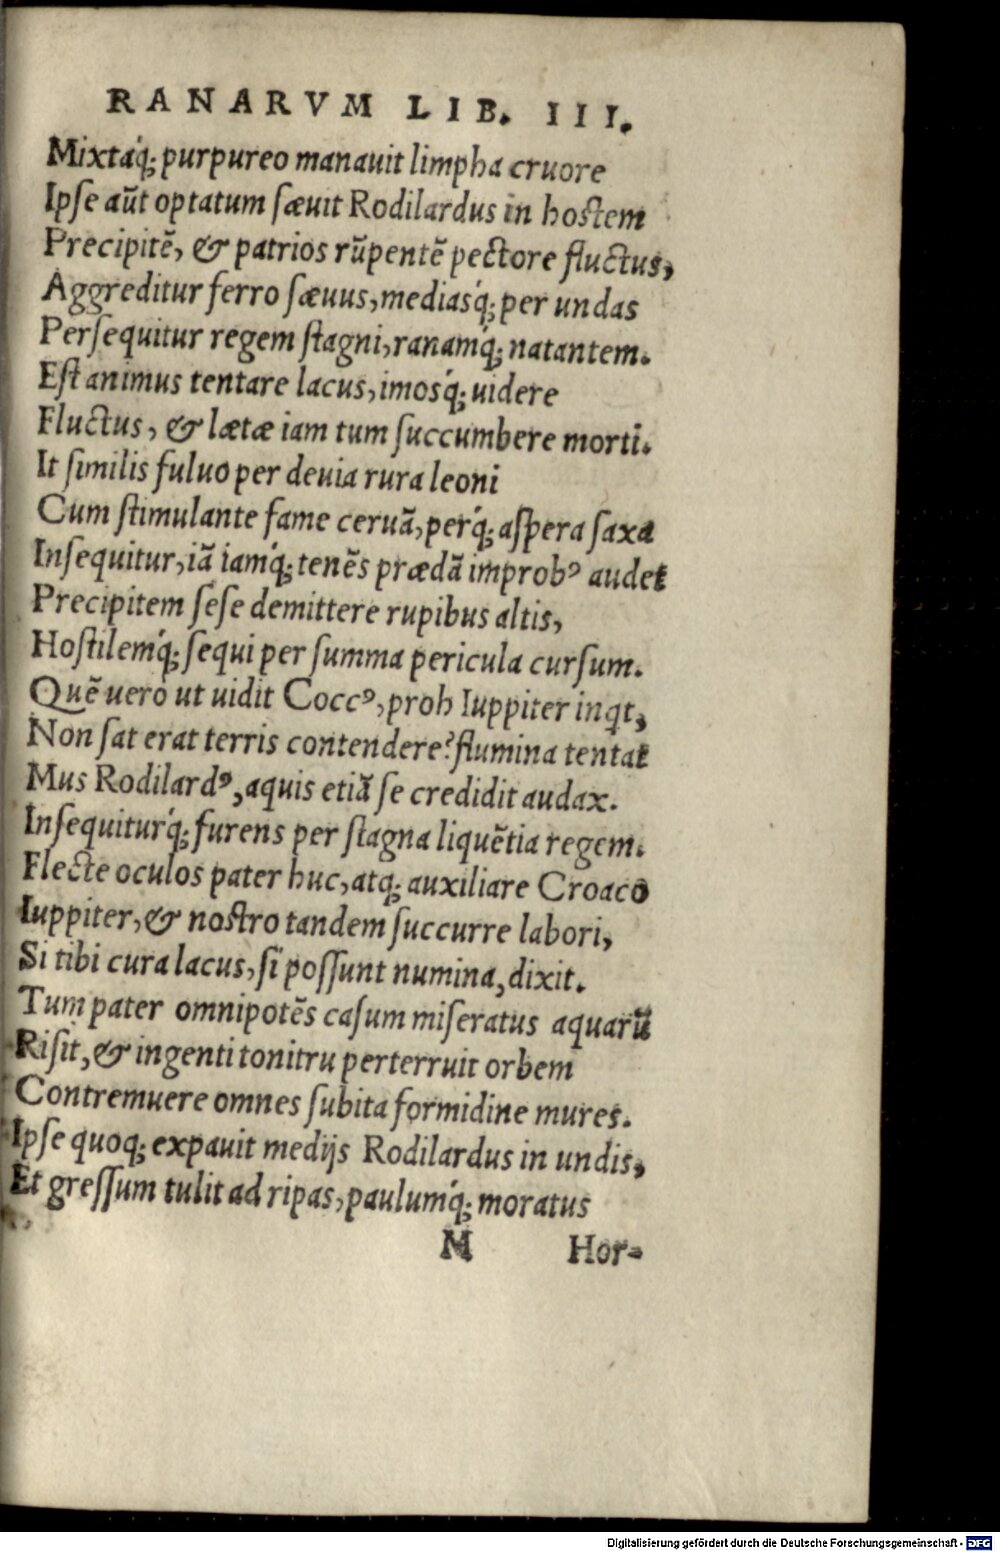 RANARVM LIB. III.
Mixtáq; purpureo manauit limpha cruore
Ipſe aũt optatum ſæuit Rodilardus in hoſtem
Precipitẽ, & patrios rũpentẽ pectore fluctus,
Aggreditur ferro ſæuus, mediasq́; per undas
Perſequitur regem ſtagni, ranamq́; natantem.
Eſt animus tentare lacus, imosq́; uidere
Fluctus, & lætæ iam tum ſuccumbere morti.
It ſimilis fuluo per deuia rura leoni
Cum ſtimulante fame ceruã, perq́; aſpera ſaxa
Inſequitur, iã iamq́; tenẽs prædã improbꝰ audet
Precipitem ſeſe demittere rupibus altis,
Hoſtilemq́; ſequi per ſumma pericula curſum.
Quẽ uero ut uidit Coccꝰ, proh Iuppiter inqt,
Non ſat erat terris contendere? flumina tentat
Mus Rodilardꝰ, aquis etiã ſe credidit audax.
Inſequiturq́; furens per ſtagna liquẽtia regem.
Flecte oculos pater huc, atq; auxiliare Croaco
Iuppiter, & noſtro tandem ſuccurre labori,
Si tibi cura lacus, ſi poſſunt numina, dixit.
Tum pater omnipotẽs caſum miſeratus aquarũ
Riſit, & ingenti tonitru perterruit orbem
Contremuere omnes ſubita formidine mures.
Ipſe quoq; expauit medijs Rodilardus in undis,
Et greſſum tulit ad ripas, paulumq́; moratus
M Hor-
Digitalisierung gefördert durch die Deutsche Forschungsgemeinschaft - DFG